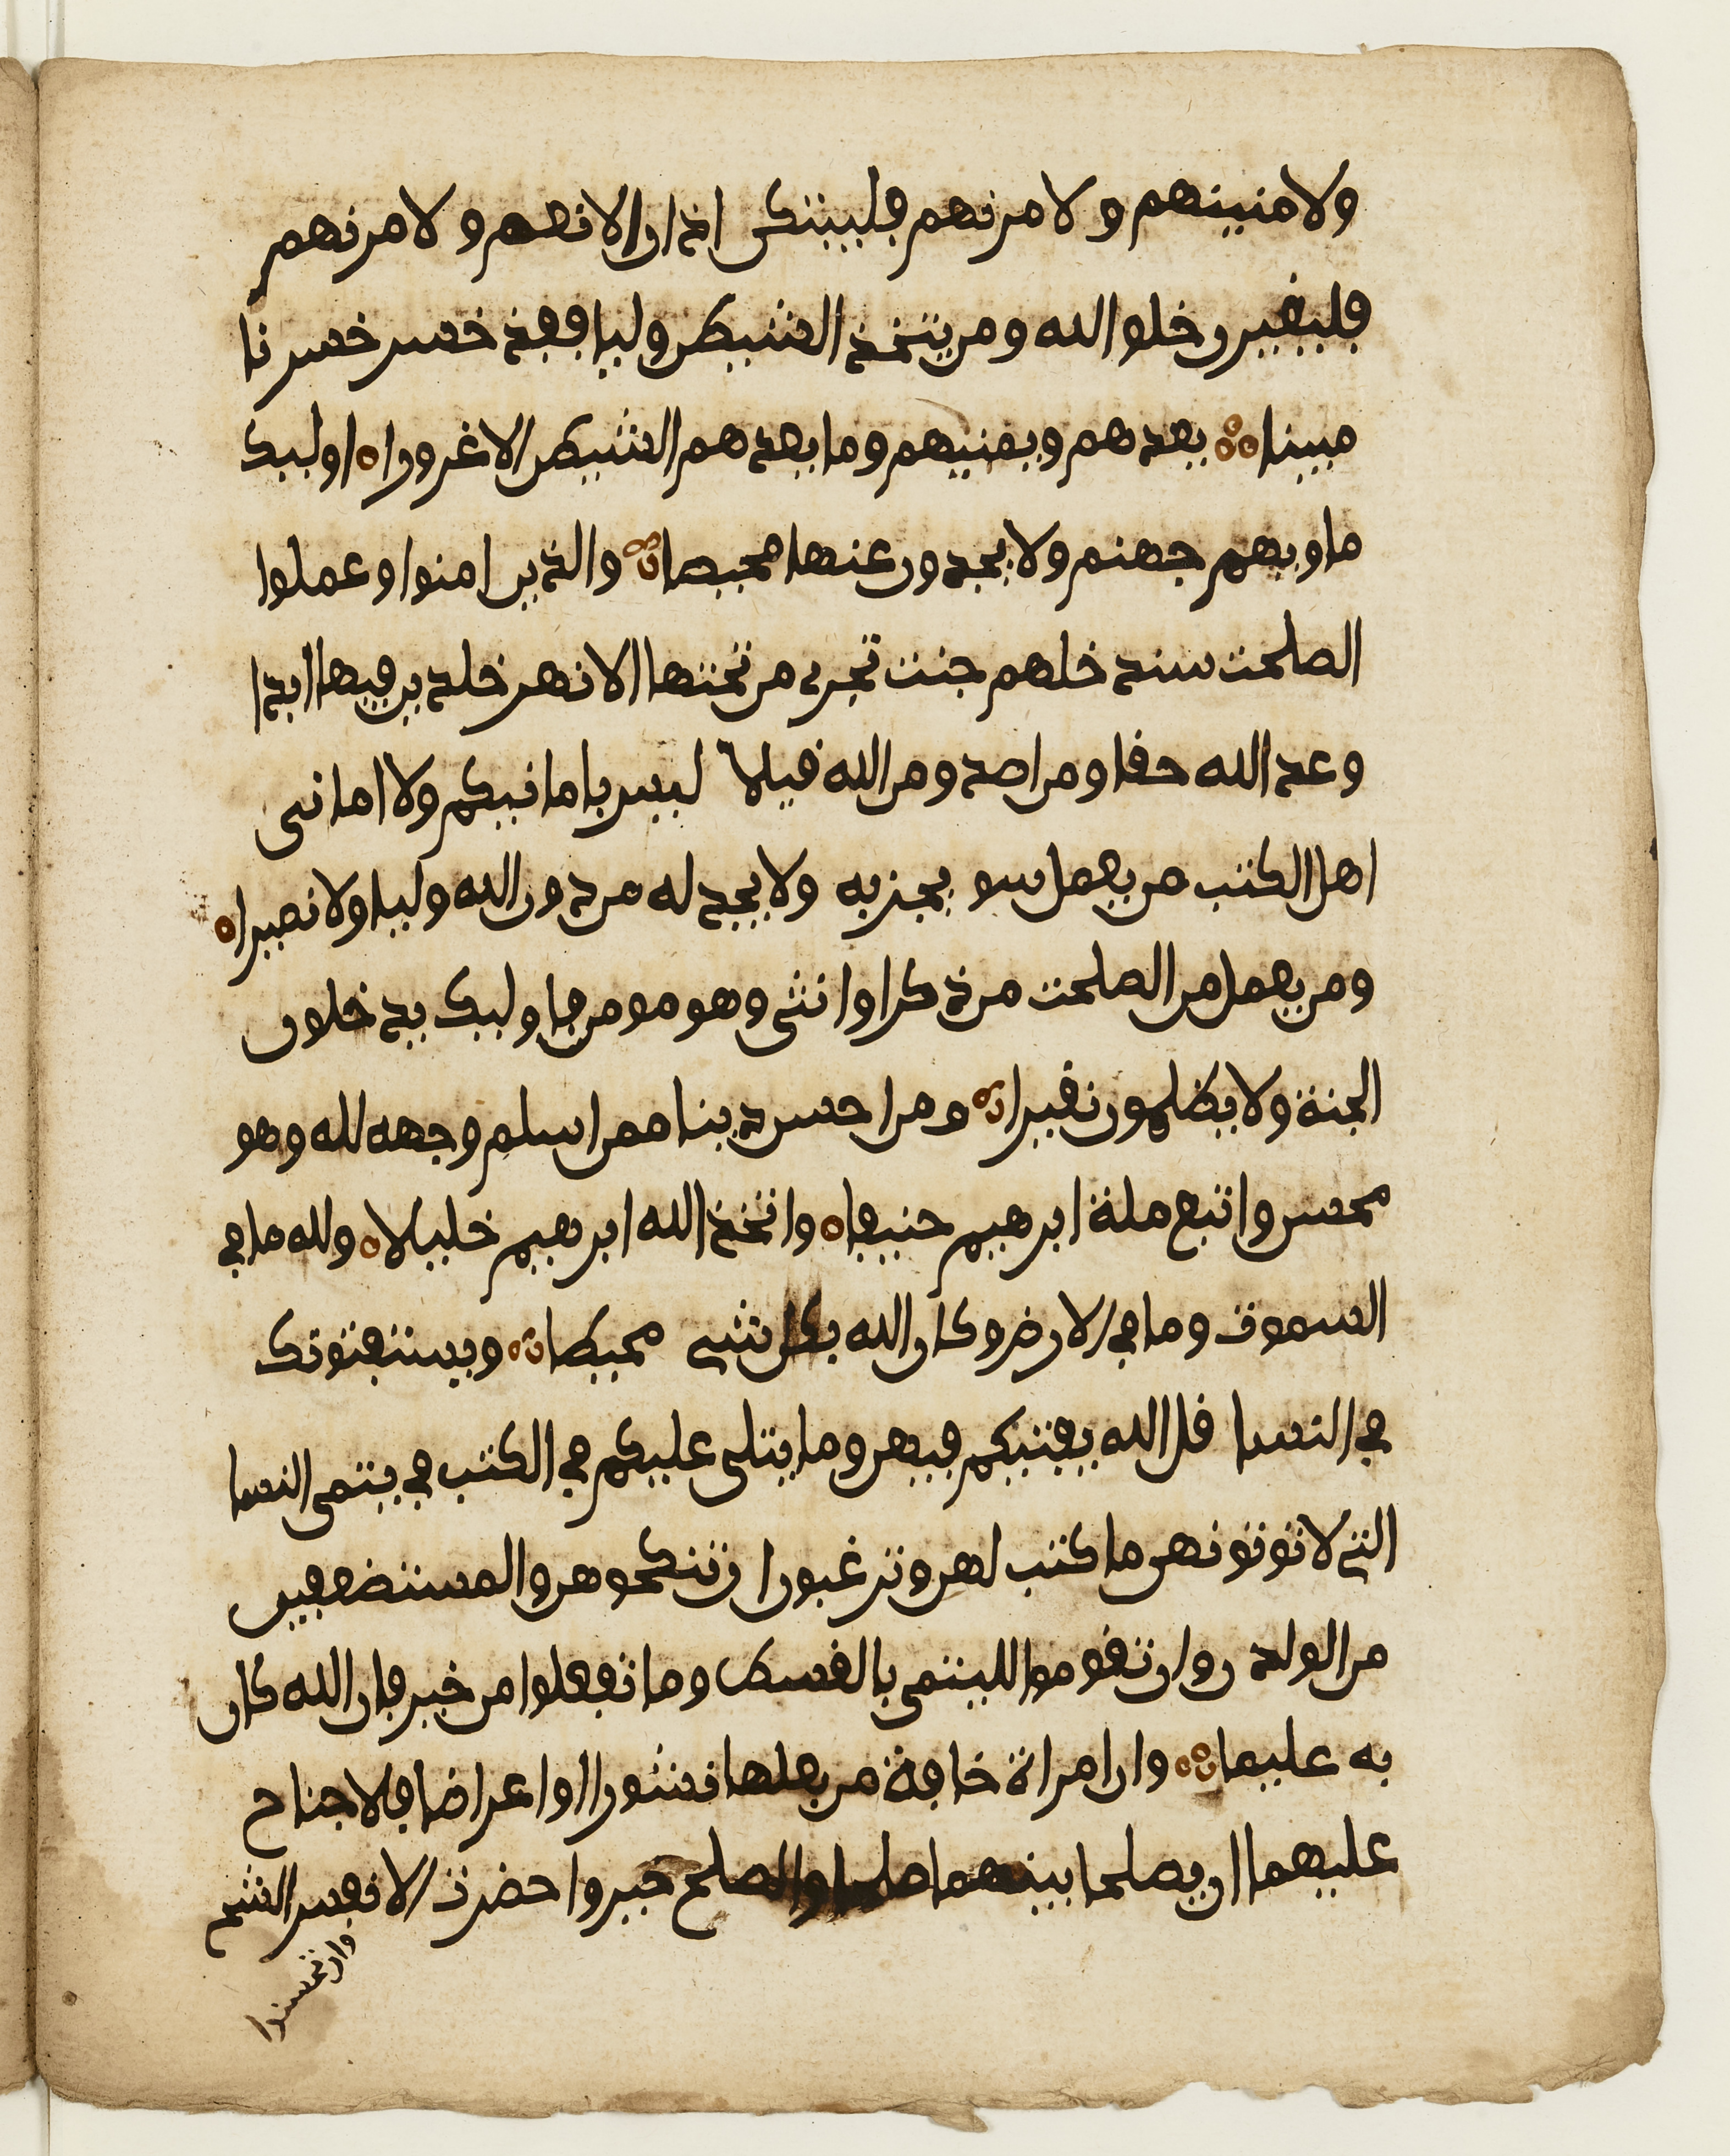 ولامنينهم ولامرنهم فليبتكن اذان الانعم ولامرنهم
فليغيرن خلق الله ومن يتخذ الشيطن وليا فقد خسر خسرنا
مبينا يعدهم ويمنيهم وما يعدهم الشيطن الا غرورا اوليك
ماويهم جهنم ولا يجدون عنها محيصا والذين امنوا وعملوا
الصلحت سندخلهم جنت تجرى من تحتها الانهر خلدين فيها ابدا
وعد الله حقا ومن اصدق من الله قيلا ليس بامانيكم ولا امانى
اهل الكتب من يعمل سو يجز به ولا يجد له من دون الله وليا ولا نصيرا
ومن يعمل من الصلحت من ذكر او انثى وهو مومن فاوليك يدخلون
الجنة ولا يظلمون نقيرا ومن احسن دينا ممن اسلم وجهه لله وهو
محسن واتبع ملة ابرهيم حنيفا واتخذ الله ابرهيم خليلا ولله ما في
السموت وما في الارض وكان الله بكل شى محيطا ويستفتونك
في النسا قل الله يفتيكم فيهن وما يتلى عليكم في الكتب في يتمى النسا
التي لا توتونهن ما كتب لهن وترغبون ان تنكحوهن والمستضعفين
من الولدن وان تقوموا لليتمى بالقسط وما تفعلوا من خير فان الله كان
به عليما وان امراة خافت من بعلها نشورا او اعراضا فلا جناح
عليهما ان يصلحا بينهما صلحا والصلح خير واحضرت الانفس الشح
وان تحسنوا